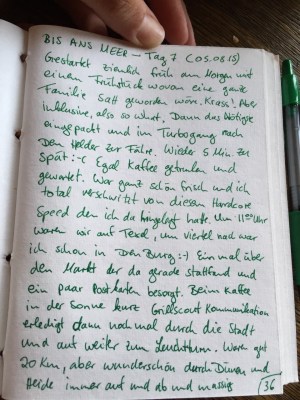 BIS ANS MEER – Tag 7 (05.08.15)
Gestartet ziemlich früh am Morgen mit
einem Frühstück wovon eine ganze
Familie satt geworden wäre. Krass! Aber
inklusive, also so what. Dann das Nötigste
eingepackt und im Turbogang nach
Den Helder zur Fähre. Wieder 5 Min. zu
spät :-( Egal Kaffee getrunken und
gewartet. War ganz schön frisch und ich
total verschwitzt von diesem Hardcore
Speed den ich da hingelegt hatte. Um 11:00 Uhr
waren wir auf Texel, um viertel nach war
ich schon in Den Burg :-) Einmal über
den Markt der da gerade stattfand und
ein paar Postkarten besorgt. Beim Kaffee
in der Sonne kurz Grillscout Kommunikation
erledigt dann nochmal durch die Stadt
und auf weiter zum Leuchtturm. Waren gut
20 Km, aber wunderschön durch Dünen und
Heide immer auf und ab und massig
36